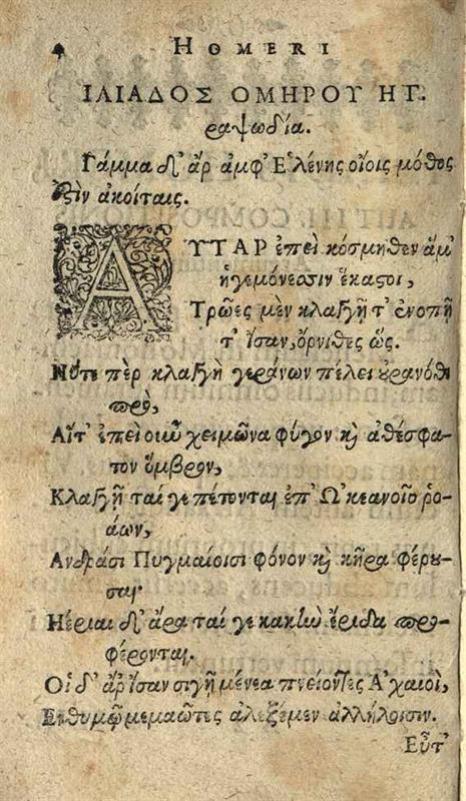 HOMERI
ΙΛΙΑΔΟΣ ΟΜΗΡΟΥ Η Γ.
ραψωδία.
Γάμμα δ' ἄρ ἀμφ' Ἑλένης οἴοις μόθος
ὀξὶν ἀκοίταις.
ΑΥΤΑΡ ἐπεὶ κόσμηθεν ἅμ'
ἡγεμόνεσσιν ἕκαστοι,
Τρῶες μὲν κλαγγῇ τ' ἐνοπῇ
τ' ἴσαν, ὄρνιθες ὥς.
Ἠΰτε πὲρ κλαγγὴ γεράνων πέλει οὐρανόθι
πρὸ,
Αἵτ' ἐπεὶ οὖν χειμῶνα φύγον καὶ ἀθέσφα-
τον ὄμβρον,
Κλαγγῇ ταί γε πέτονται ἐπ' Ὠκεανοῖο ῥο-
άων,
Ανδράσι Πυγμαίοισι φόνον καὶ κῆρα φέρου-
σαι·
Ηέριαι δ' ἄρα ταί γε κακὴν ἔριδα προ-
φέρονται.
Οἱ δ' ἄρ' ἴσαν σιγῇ μένεα πνείοντες Ἀχαιοὶ,
Ἐν θυμῷ μεμαῶτες ἀλεξέμεν ἀλλήλοισιν.
Εὖτ'